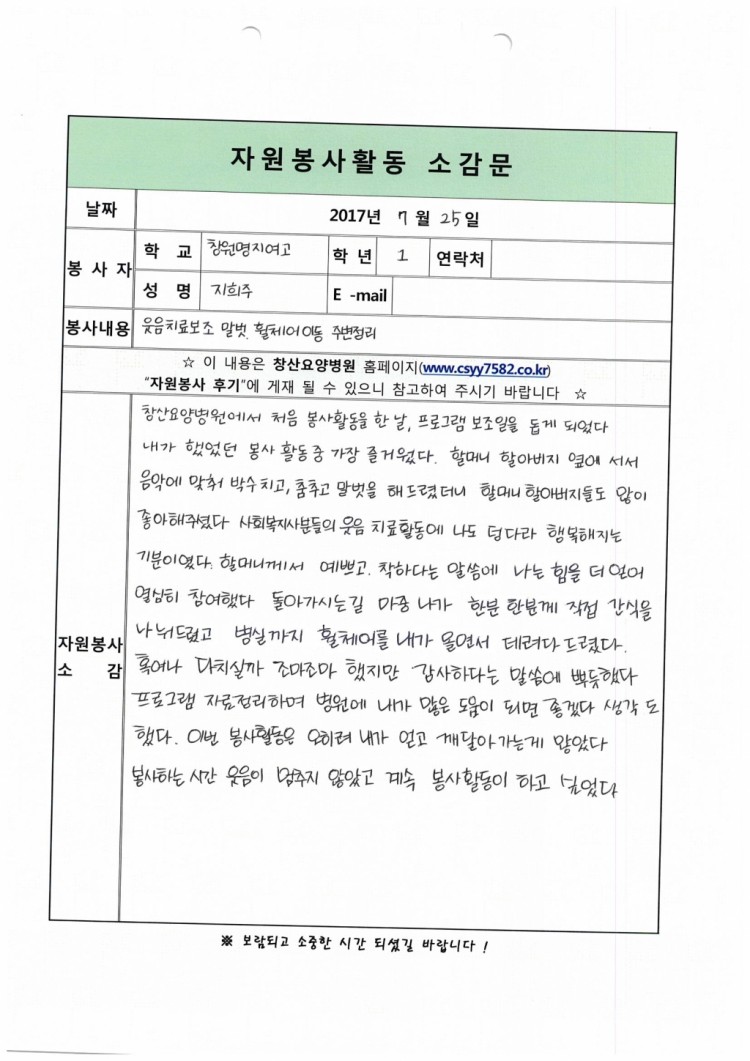 자원봉사활동 소감문
날짜 2017년 7월 25일
봉사자 학교 창원명지여고 학년 1 연락처
성명 지희주 E-mail
봉사내용 웃음치료보조 말벗, 휠체어이동 주변정리
☆ 이 내용은 창산요양병원 홈페이지(www.csyy7582.co.kr)
"자원봉사 후기"에 게재 될 수 있으니 참고하여 주시기 바랍니다 ☆
자원봉사 소감
창산요양병원에서 처음 봉사활동을 한 날, 프로그램 보조일을 돕게 되었다
내가 했었던 봉사 활동중 가장 즐거웠다. 할머니 할아버지 옆에 서서
음악에 맞춰 박수치고, 춤추고 말벗을 해드렸더니 할머니 할아버지들도 많이
좋아해주셨다 사회복지사분들의 웃음 치료활동에 나도 덩다라 행복해지는
기분이였다. 할머니께서 예쁘고. 착하다는 말씀에 나는 힘을 더 얻어
열심히 참여했다 돌아가시는길 마중 나가 한분 한분께 직접 간식을
나눠드렸고 병실까지 휠체어를 내가 올면서 데려다 드렸다.
혹여나 다치실까 조마조마 했지만 감사하다는 말씀에 뿌듯했다
프로그램 자료정리하며 병원에 내가 많은 도움이 되면 좋겠다 생각 도
했다. 이번 봉사활동은 오히려 내가 얻고 깨달아가는게 많았다
봉사하는 시간 웃음이 멈추지 않았고 계속 봉사활동이 하고 싶었다
※ 보람되고 소중한 시간 되셨길 바랍니다 !